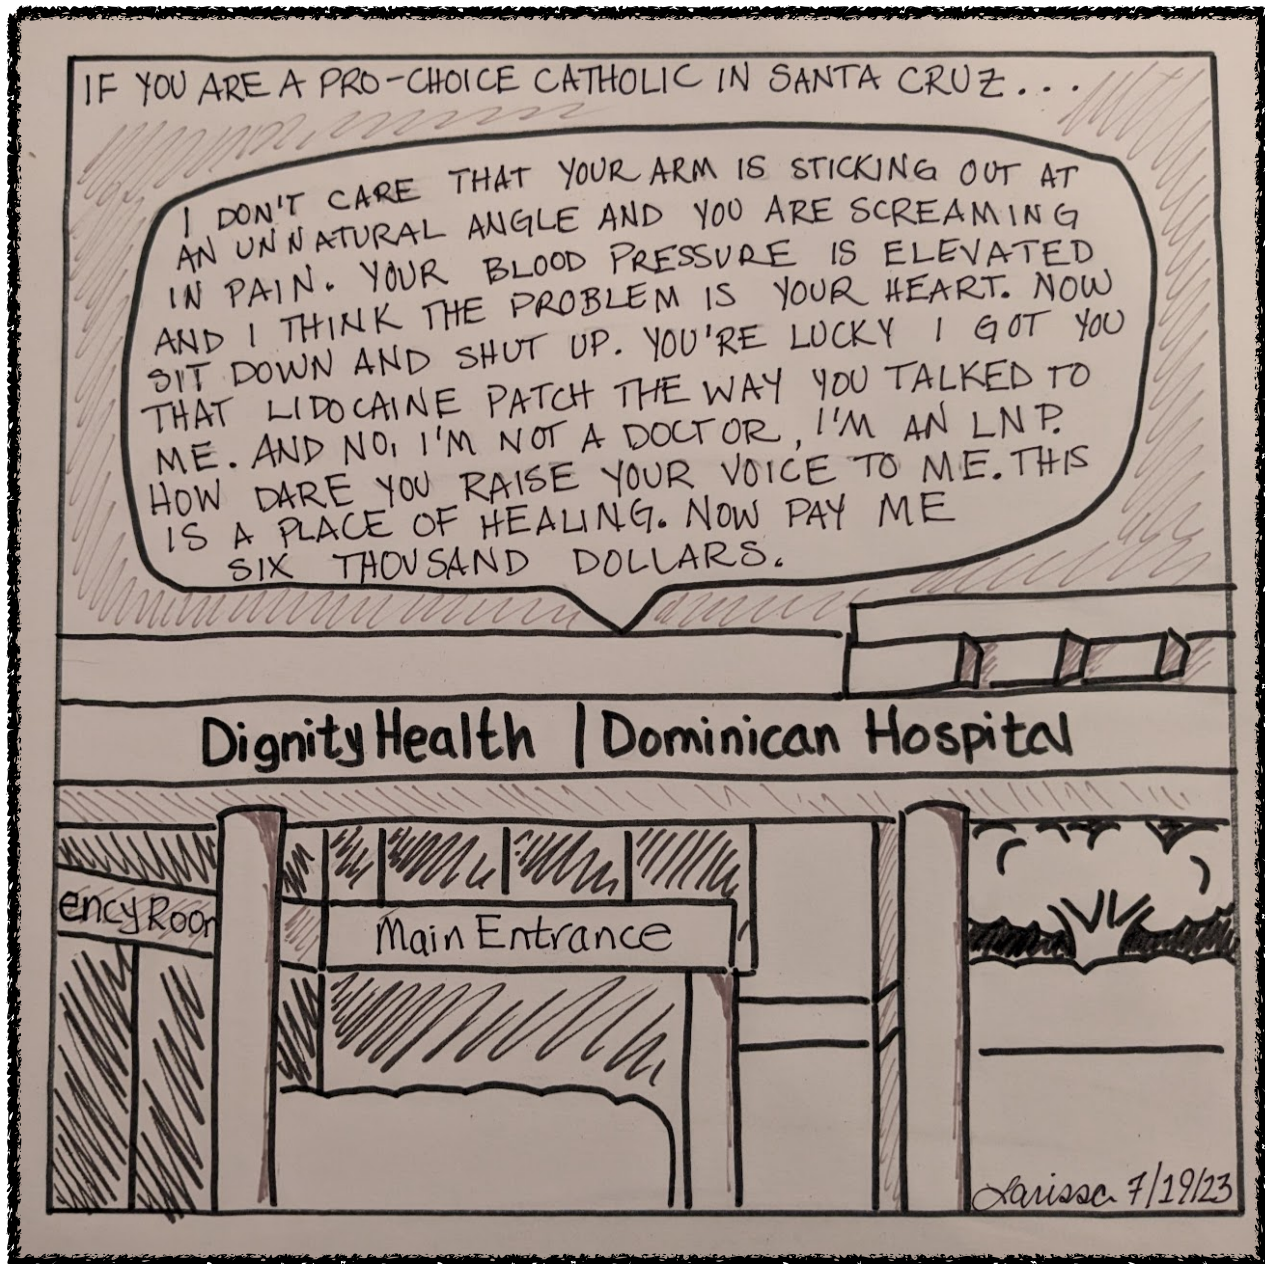 IF YOU ARE A PRO-CHOICE CATHOLIC IN SANTA CRUZ...
I DON'T CARE THAT YOUR ARM IS STICKING OUT AT
AN UNNATURAL ANGLE AND YOU ARE SCREAMING
IN PAIN. YOUR BLOOD PRESSURE IS ELEVATED
AND I THINK THE PROBLEM IS YOUR HEART. NOW
SIT DOWN AND SHUT UP. YOU'RE LUCKY I GOT YOU
THAT LIDOCAINE PATCH THE WAY YOU TALKED TO
ME. AND NO, I'M NOT A DOCTOR, I'M AN LNP.
HOW DARE YOU RAISE YOUR VOICE TO ME. THIS
IS A PLACE OF HEALING. NOW PAY ME
SIX THOUSAND DOLLARS.
Dignity Health | Dominican Hospital
ency Room
Main Entrance
Larissa 7/19/23